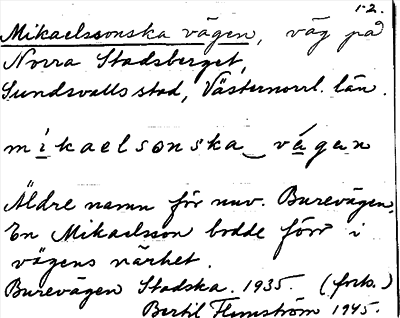 1-2.
Mikaelssonska vägen, väg på
Norra Stadsberget,
Sundsvalls stad, Västernorrl. län.
mikaelsonska vägan
Äldre namn för nuv. Burevägen.
En Mikaelsson bodde förr i
vägens närhet.
Burevägen Stadska. 1935. (forts.)
Bertil Flemström 1945.